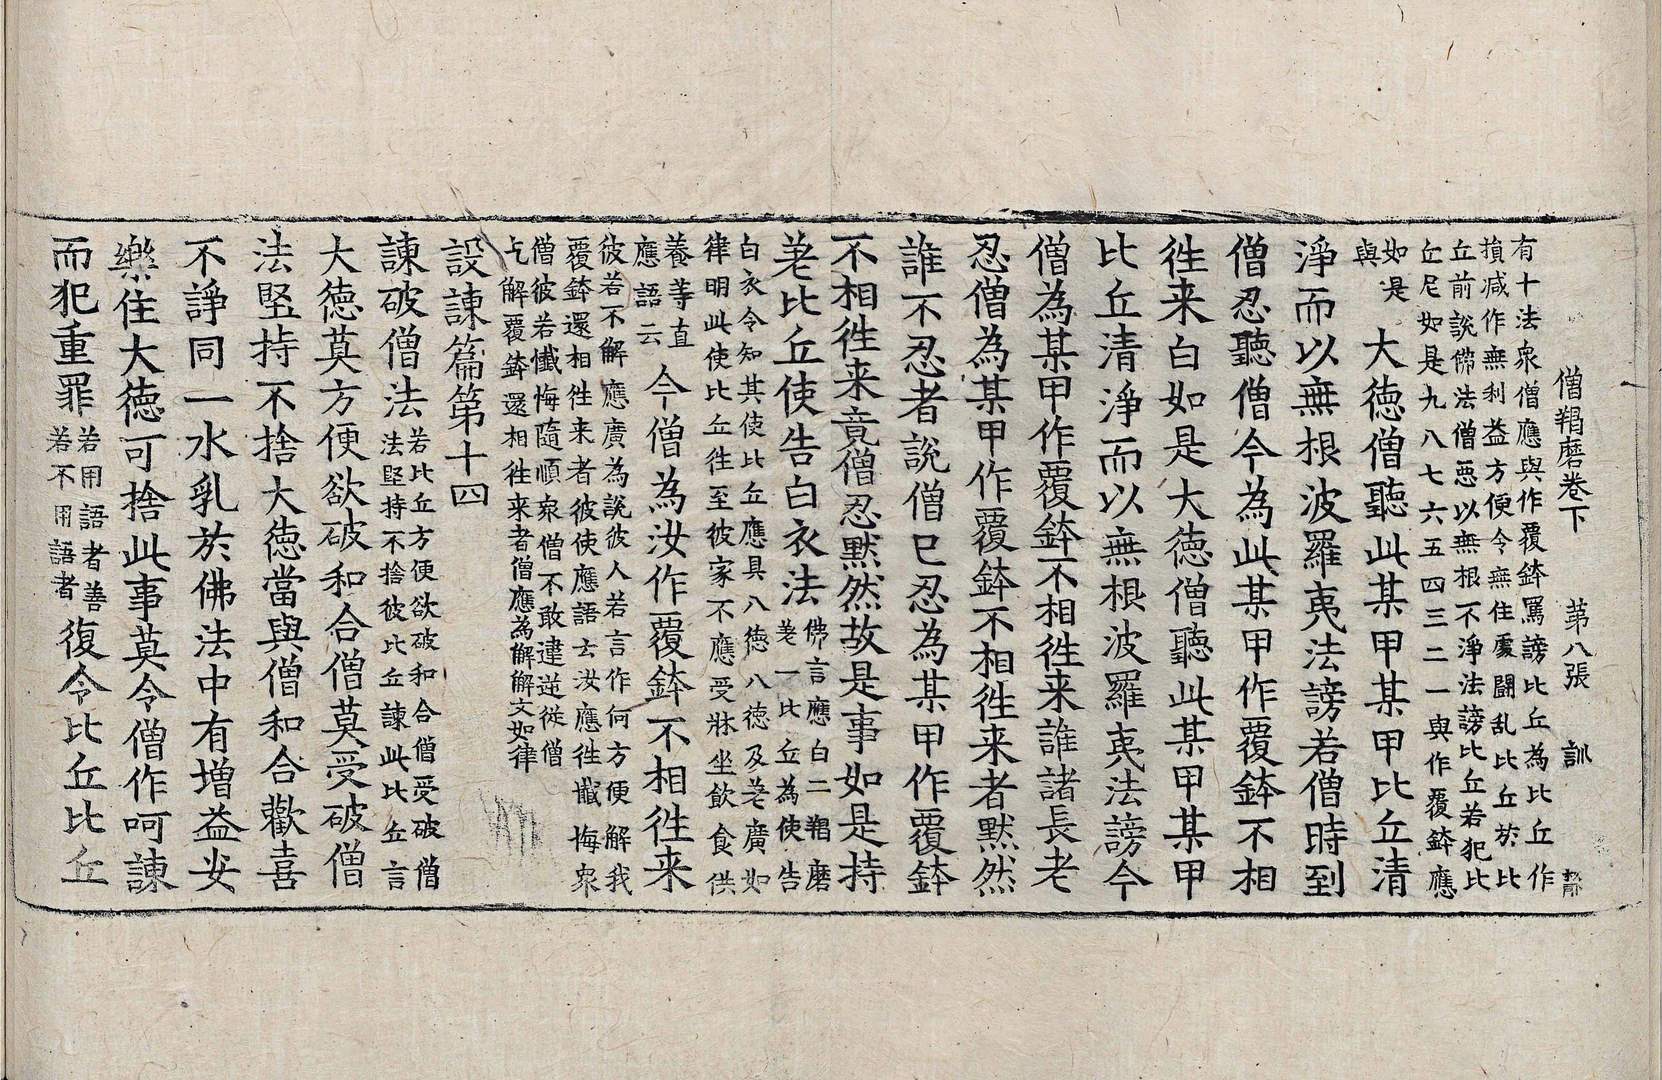 僧羯磨卷下　第八張　訓
有十法衆僧應與作覆鉢罵謗比丘為比丘作
損減作無利益方便令無住處鬪乱比丘於比
丘前說佛法僧惡以無根不淨法謗比丘若犯比
丘尼如是九八七六五四三二一與作覆鉢應
如是
與
大德僧聽此某甲某甲比丘清
淨而以無根波羅夷法謗若僧時到
僧忍聽僧今為此某甲作覆鉢不相
徃来白如是大德僧聽此某甲某甲
比丘清淨而以無根波羅夷法謗今
僧為某甲作覆鉢不相徃来誰諸長老
忍僧為某甲作覆鉢不相徃来者默然
誰不忍者說僧已忍為某甲作覆鉢
不相徃来竟僧忍默然故是事如是持
差比丘使告白衣法
佛言應白二羯磨
差一比丘為使告
白衣令知其使比丘應具八德八德及差廣如
律明此使比丘徃至彼家不應受牀坐飲食供
養䓁直
應語云
今僧為汝作覆鉢不相徃来
彼若不解應廣為說彼人若言作何方便解我
覆鉢還相徃来者彼使應語言汝應徃懺悔衆
僧彼若懺悔隨順衆僧不敢違逆從僧
乞解覆鉢還相徃来者僧應為解解文如律
設諫篇第十四
諫破僧法
若比丘方便欲破和合僧受破僧
法堅持不捨彼比丘諫此比丘言
大德莫方便欲破和合僧莫受破僧
法堅持不捨大德當與僧和合歡喜
不諍同一水乳於佛法中有增益安
樂住大德可捨此事莫令僧作呵諫
而犯重罪
若用語者善
若不用語者
復令比丘比丘